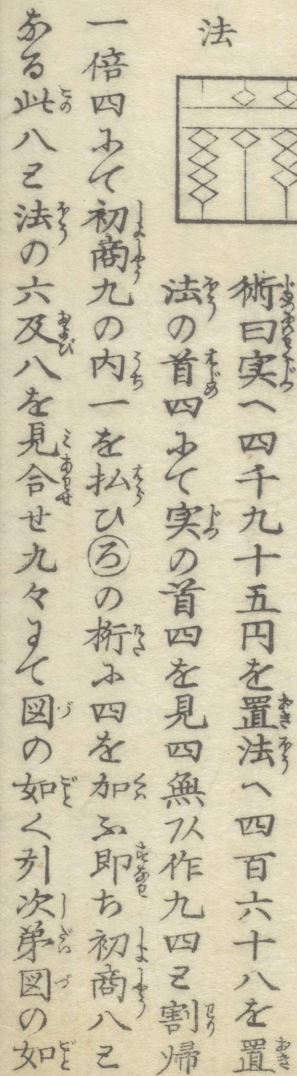 法
術曰実へ四千九十五円を置法へ四百六十八を置
法の首四にて実の首四を見四無双作九四と割帰
一倍四にて初商九の内一を払ひろの桁に四を加ふ即ち初商八と
なる此八と法の六及八を見合せ九々にて図の如く引次第図の如